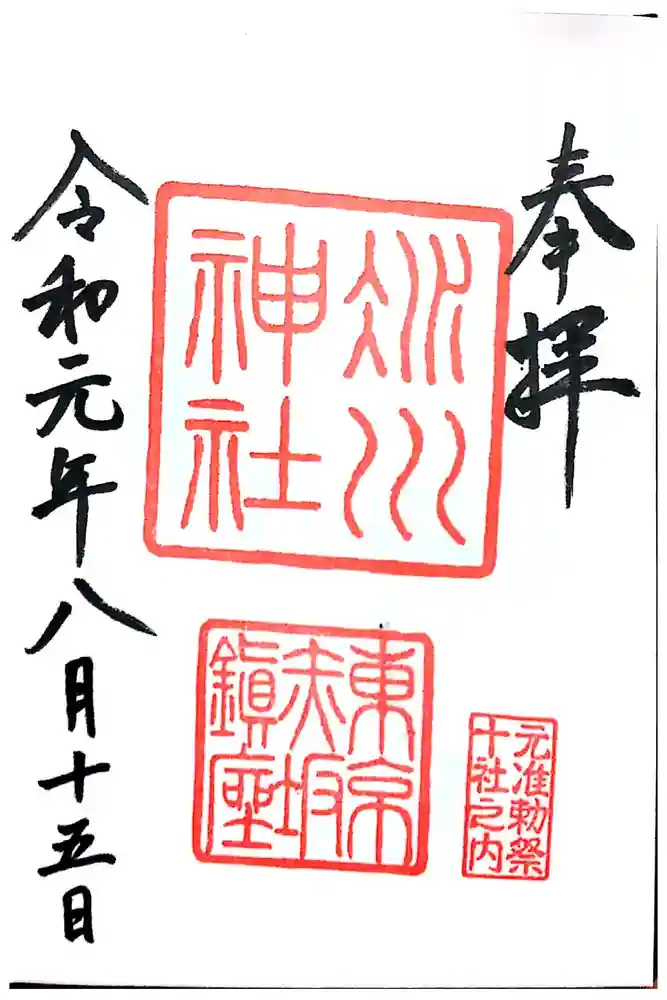 奉拝
氷川
神社
東京
赤坂
鎮座
元准勅祭
十社之内
令和元年八月十五日